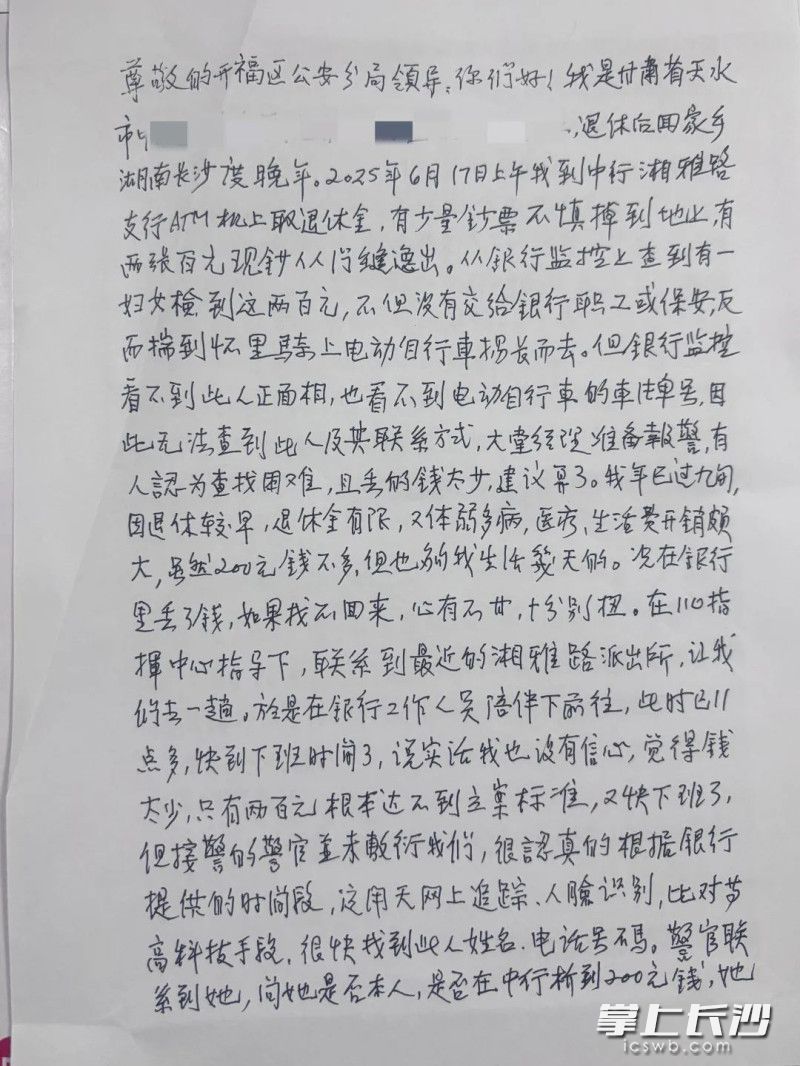 尊敬的开福区公安分局领导：你们好！我是甘肃省天水
市，退休后回家乡
湖南长沙度晚年。2025年6月17日上午我到中行湘雅路
支行ATM机上取退休金，有少量钞票不慎掉到地上，有
两张百元现钞从门缝逸出。从銀行监控上查到有一
妇女檢到这两百元，不但没有交给銀行职工或保安，反
而揣到怀里騎上电动自行車揚长而去。但銀行监控
看不到此人正面相，也看不到电动自行車的車牌单号，因
此无法查到此人及其联系方式，大堂经理准备報警，有
人認为查找困难，且丢的钱太少，建议算了。我年已过九旬，
因退休较早，退休金有限，又体弱多病，医疗、生活费开銷頗
大，虽然200元錢不多，但也够我生活幾天的。况在銀行
里丢了錢，如果找不回来，心有不甘，十分别扭。在110指
揮中心指导下，联系到最近的湘雅路派出所，让我
们去一趟。於是在銀行工作人员陪伴下前往，此时已11
点多，快到下班时间了，说实话我也没有信心，觉得錢
太少，只有两百元根本达不到立案标准，又快下班了，
但接警的警官並未敷衍我们，很認真的根据銀行
提供的时间段，运用天网上追踪、人臉识别，比对等
高科技手段，很快找到此人姓名、电话号碼。警官联
系到她，问她是否本人，是否在中行拾到200元錢，她
掌上长沙
icswb.com